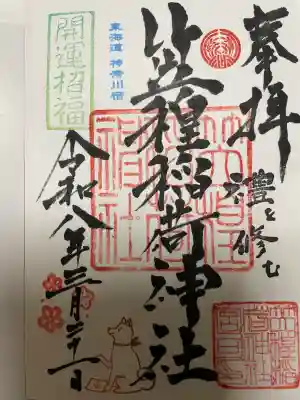 奉拝
禮を修む
笠䅣稲荷神社
東海道 神奈川宿
開運招福
令和八年三月三十一日